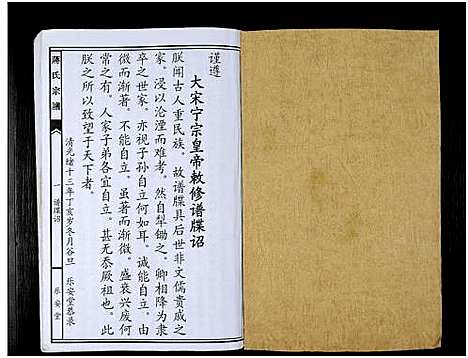 谨遵
大宋宁宗皇帝敕修谱牒诏
朕闻古人重民族，故谱牒具后世非文儒贵戚之
家，浸以沦湮而难考。然自犁锄之。卿相降为隶
卒之世家，亦视子孙自立何如耳。诚能自立，
微而渐著。不能自立。虽著而渐微。盛衰兴废何
常之有。人家子弟各宜自立。甚无忝厥祖也。
朕之所以致望于天下者。
清光绪十三年丁亥岁冬月谷旦　乐安堂恭录
蒋氏宗谱
一
谱牒诏
乐安堂